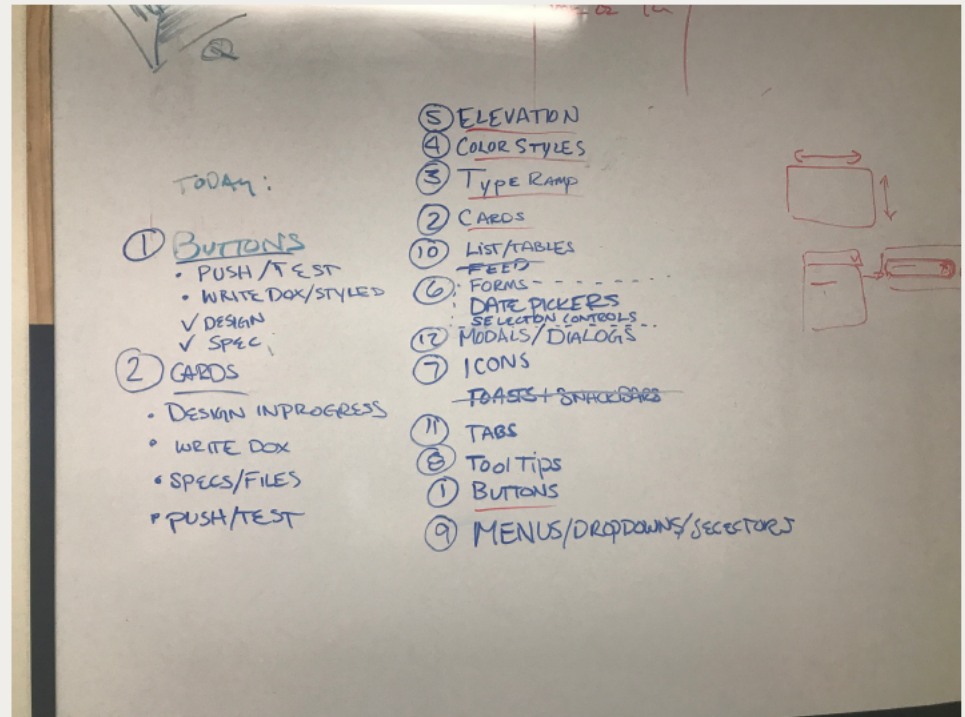 TODAY:
① BUTTONS
• PUSH/TEST
• WRITE DOX/STYLED
✓ DESIGN
✓ SPEC
② CARDS
• DESIGN INPROGRESS
• WRITE DOX
• SPECS/FILES
• PUSH/TEST
⑤ ELEVATION
④ COLOR STYLES
③ TYPE RAMP
② CARDS
⑩ LIST/TABLES
FEED
⑥ FORMS
DATE PICKERS
SELECTION CONTROLS
⑫ MODALS/DIALOGS
⑦ ICONS
TOASTS + SNACKBARS
⑪ TABS
⑧ Tool Tips
① BUTTONS
⑨ MENUS/DROPDOWNS/SELECTORS